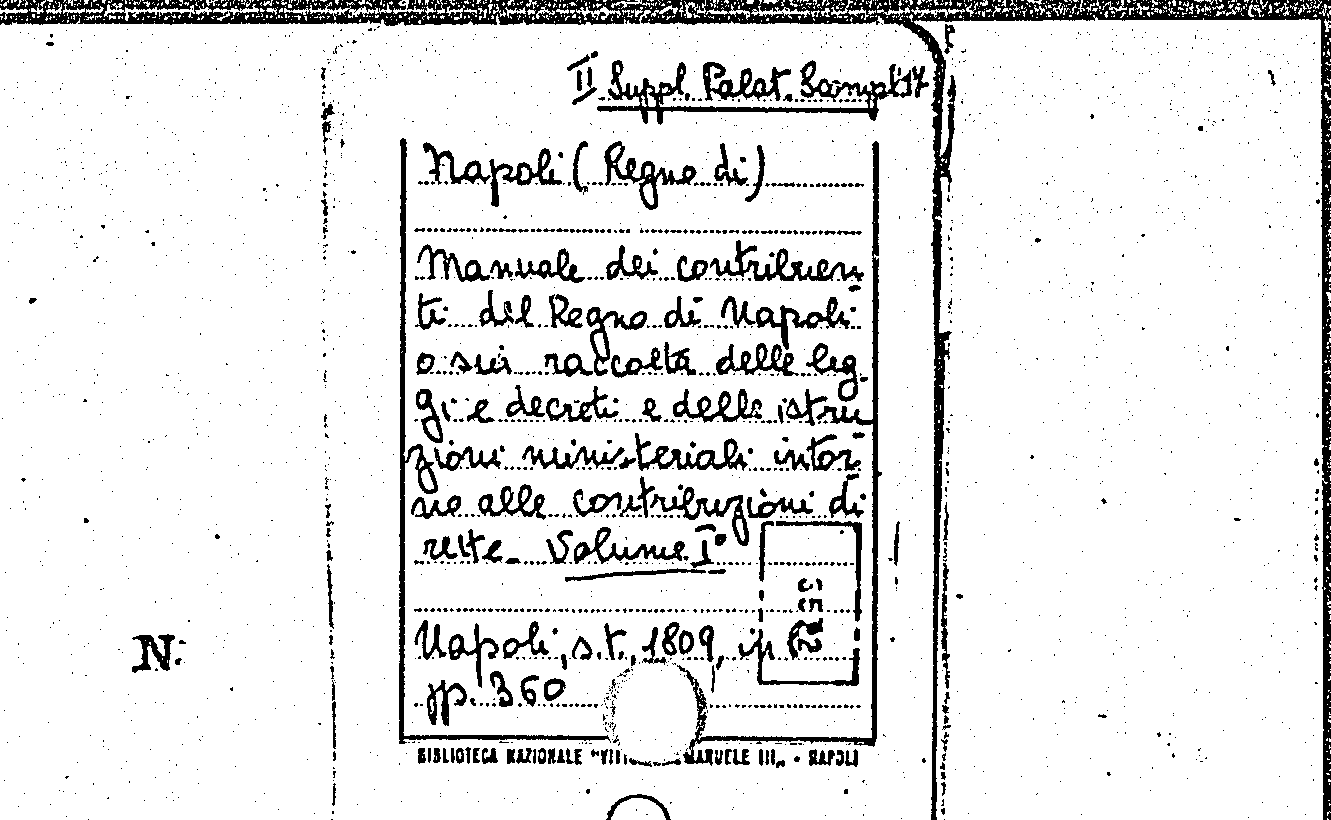 II Suppl. Palat. Scompl. 17
Napoli (Regno di)
Manuale dei contribuen
ti del Regno di Napoli
o sia raccolta delle leg
gi e decreti e delle istru
zioni ministeriali intor
no alle contribuzioni di
rette. Volume I°
Napoli, s.t., 1809, in
pp. 360
BIBLIOTECA NAZIONALE "VITT MANUELE III" - NAPOLI
N.